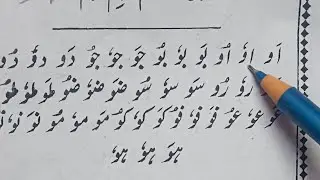 اَو اوٗ اُو بَو بوٗ بُو جَو جوٗ جُو دَو دوٗ دُو
روٗ رُو سَو سوٗ سُو ضَو ضوٗ ضُو طَو طوٗ طُو
عوٗ عُو فَو فوٗ فُو کَو کوٗ کُو مَو موٗ مُو نَو نوٗ
ہَو ہوٗ ہُو